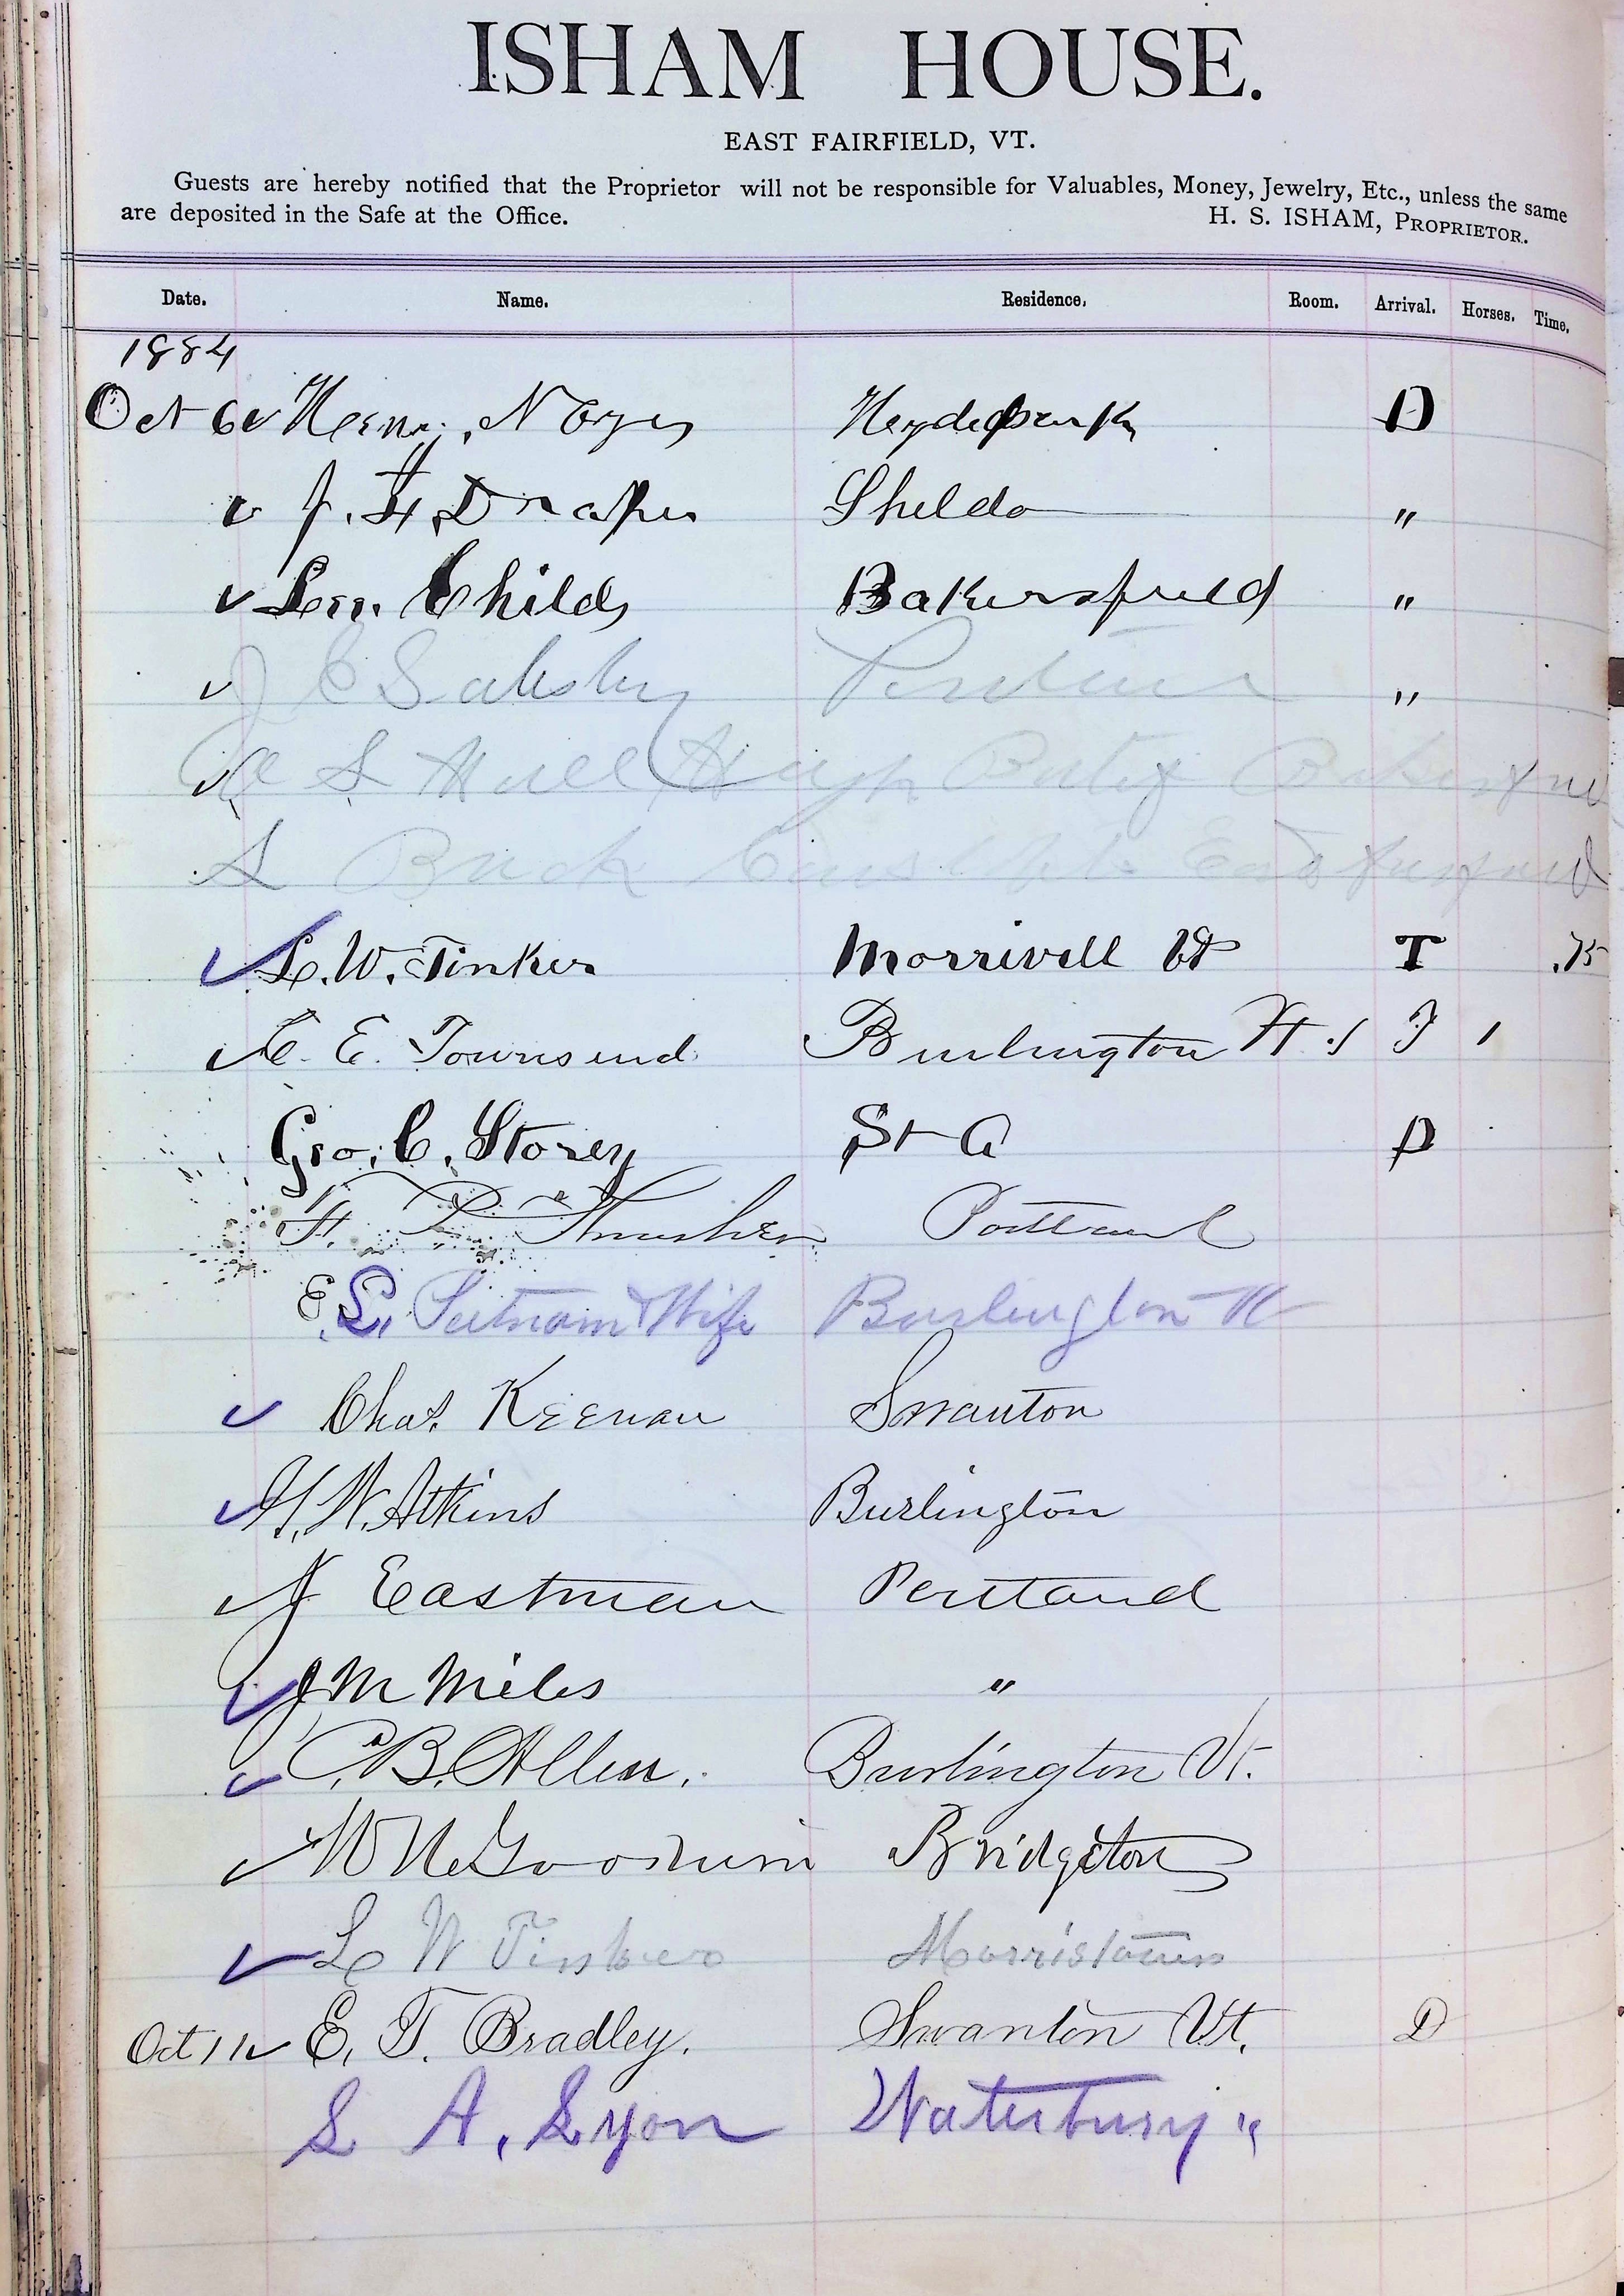 ISHAM HOUSE.
EAST FAIRFIELD, VT.
Guests are hereby notified that the Proprietor will not be responsible for Valuables, Money, Jewelry, Etc., unless the same
are deposited in the Safe at the Office. H. S. ISHAM, PROPRIETOR.
Date. Name. Residence. Room. Arrival. Horses. Time.
1884
Oct 6 Henry Noyes Hydepark D
J. H. Draper Sheldo "
Childs Bakersfield "
J E "
S Hull
S Buck
L. W. Tinker Morrivell Vt T .75
C. E. Townsend Burlington 1
Geo. C. Storey St A D
F. Thrusher Portland
E. L. Putnam & Wife Burlington Vt
Chas. Keenan Swanton
H. W. Atkins Burlington
J Eastman Portland
J M Miles "
C. B. Allen. Burlington Vt.
W H Goodwin Bridgeton
L W Tinker Morristown
Oct 11 E. T. Bradley. Swanton Vt. D
L A. Lyon Waterbury "